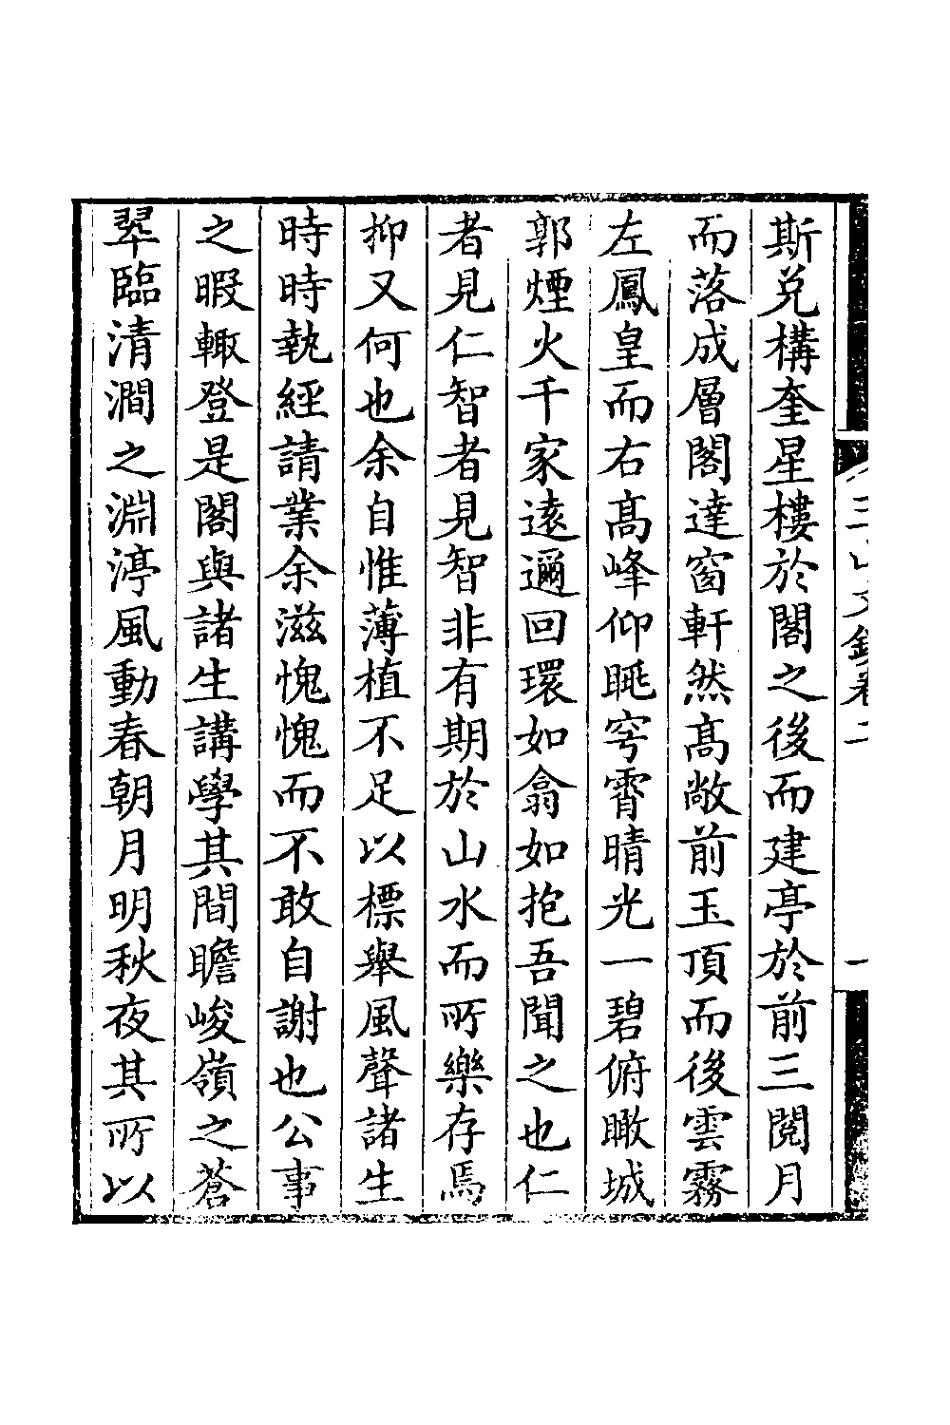 斯兌構奎星樓於閣之後而建亭於前三閱月
而落成層閣達窗軒然髙敞前玉頂而後雲霧
左鳳皇而右髙峰仰眺穹霄晴光一碧俯瞰城
郭煙火千家遠邇回環如翕如抱吾聞之也仁
者見仁智者見智非有期於山水而所樂存焉
抑又何也余自惟薄植不足以標舉風聲諸生
時時執經請業余滋愧愧而不敢自謝也公事
之暇輙登是閣與諸生講學其間瞻峻嶺之蒼
翠臨清澗之淵渟風動春朝月明秋夜其所以